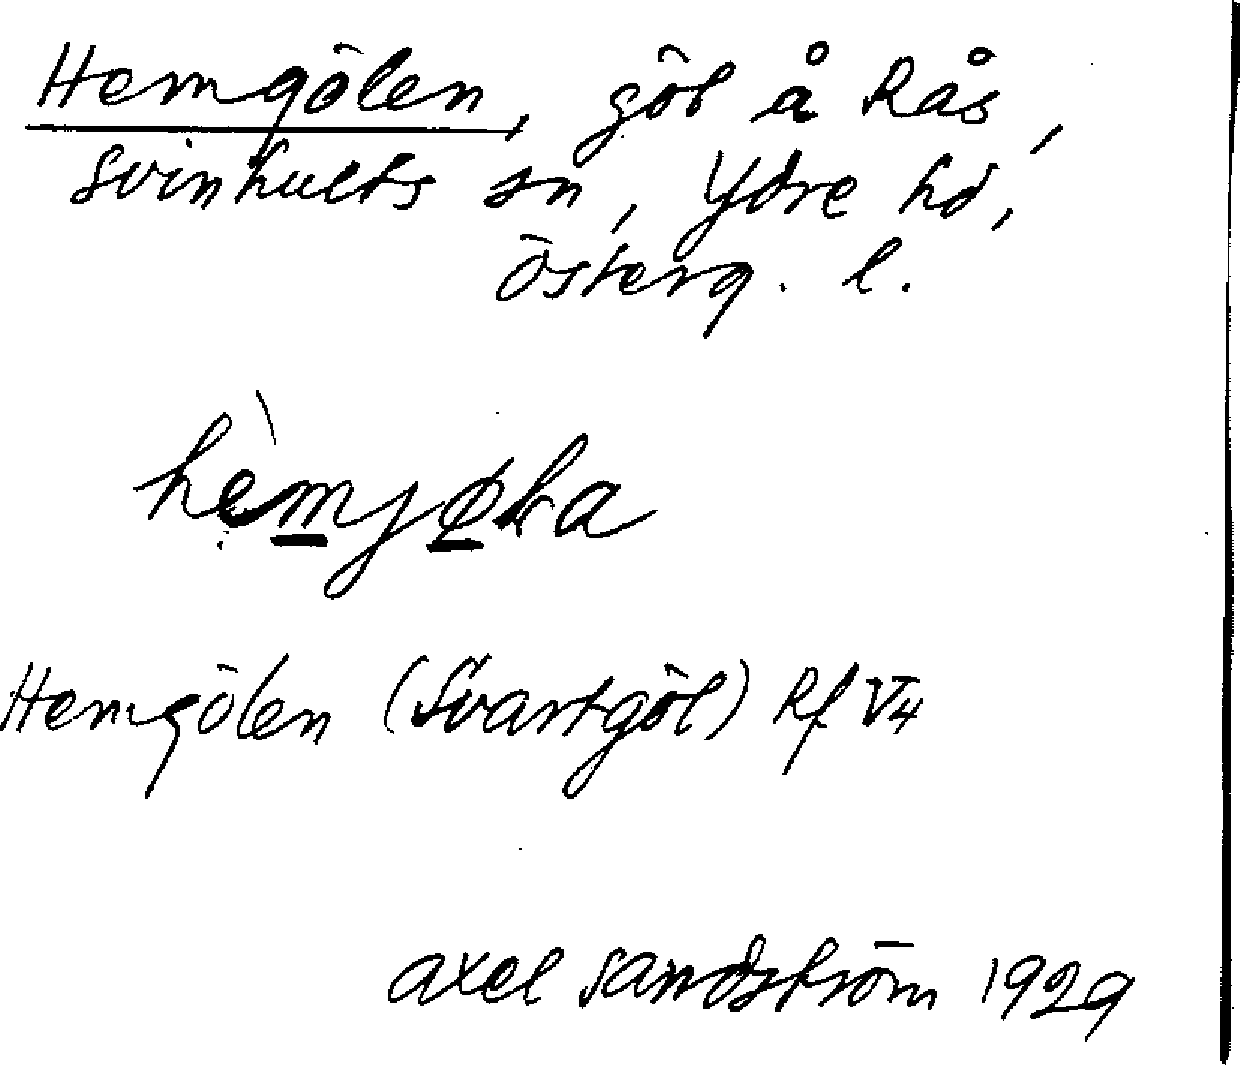 Hemgölen, göl å Rås,
Svinhults sn, Ydre hd,
Österg. l.
Hemgölen (Svartgöl) Rf V4
Axel Sandström 1929